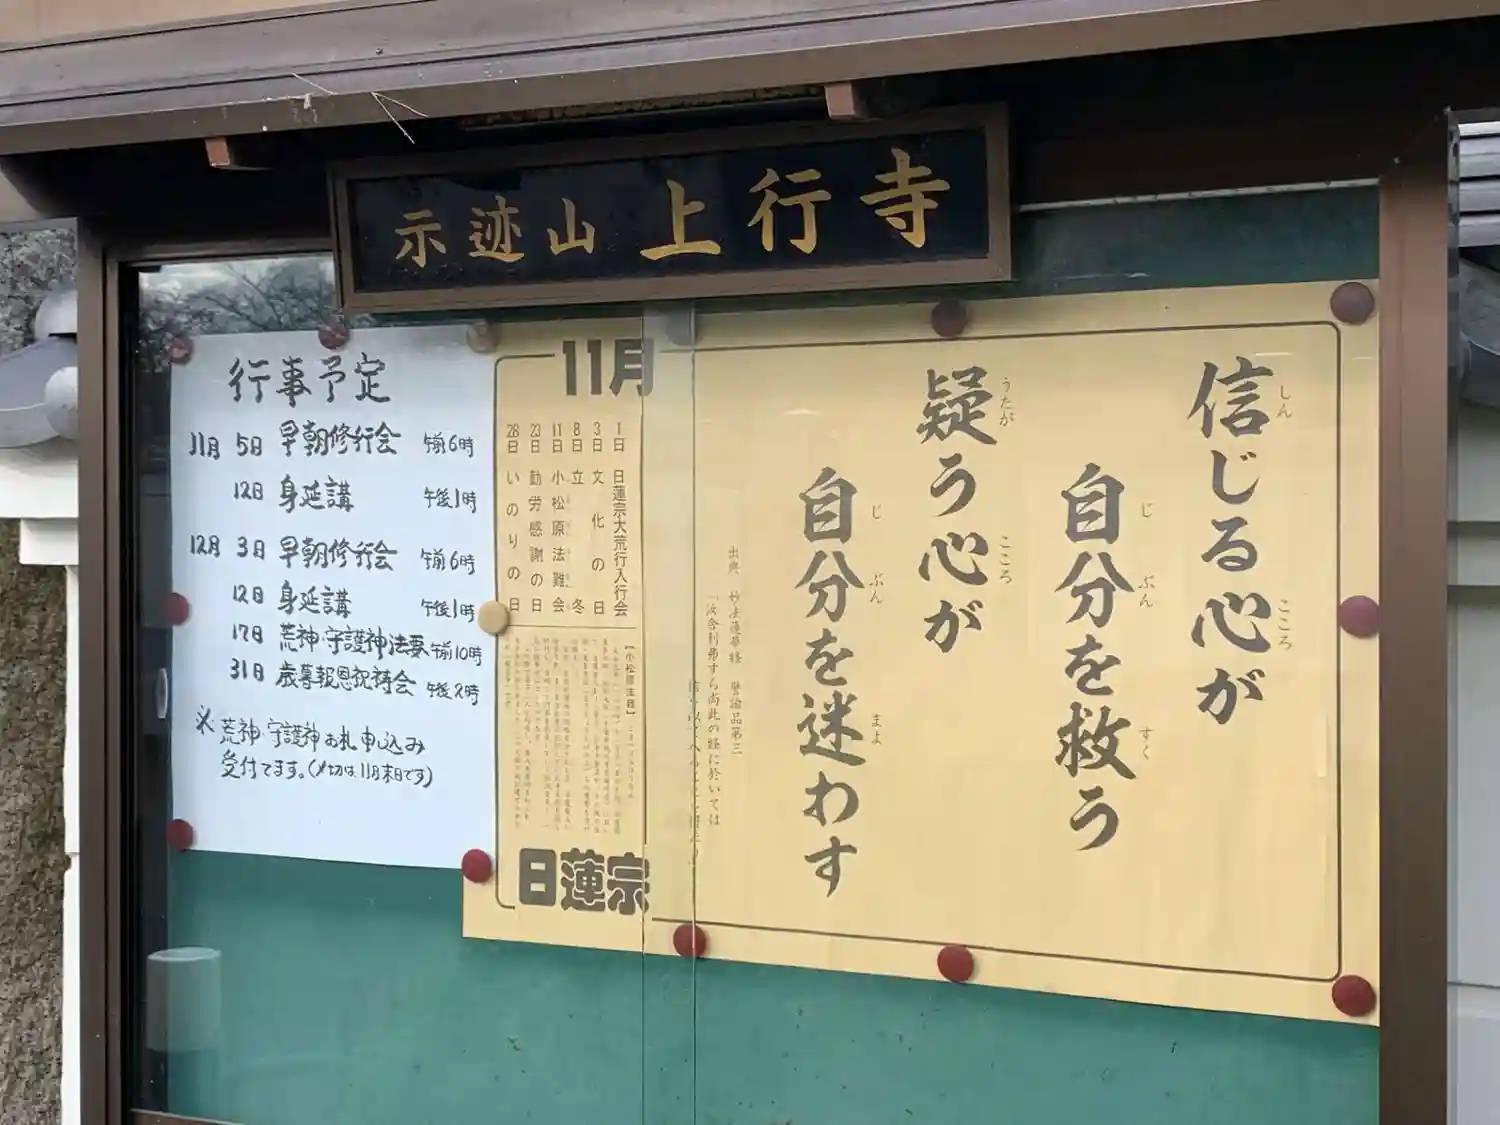 示迹山 上行寺
行事予定
11月 5日 早朝修行会 午前6時
12日 身延講 午後1時
12月 3日 早朝修行会 午前6時
12日 身延講 午後1時
17日 荒神・守護神法要 午前10時
31日 歳暮報恩祝祷会 午後2時
※荒神・守護神お札申込み
受付てます。(〆切は11月末日です)
信じる心が
しん こころ
自分を救う
じ ぶん すく
疑う心が
うたが こころ
自分を迷わす
じ ぶん まよ
出典 妙法蓮華経 譬諭品第三
「汝舎利弗すら尚此の経に於いては
11月
1日 日蓮宗大荒行入行会
3日 文化の日
8日 立冬
11日 小松原法難会
23日 勤労感謝の日
28日 いのりの日
【小松原法難】
日蓮宗